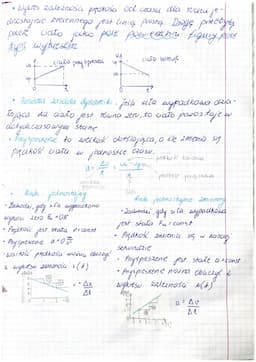 • Wykres zależności prędkości od czasu dla ruchu je-
dnostajnie zmiennego jest linią prostą. Drogę przebytą
przez ciało jako pole powierzchni figury pod
tym wykresem
ciało przyspiesza
ciało
• Pierwsza zasada dynamiki - jeśli siła wypadkowa dzia-
łająca na ciało jest równa zero, to ciało pozostaje w
dotychczasowym stanie
• Przyspieszenie to wielkość określająca, o ile zmienia się
prędkość ciała w jednostce czasu.
prędkość końcowa
a = Δv/t =
prędkość początkowa
Ruch jednostajny
• Zachodzi, gdy siła wypadkowa
wynosi zero Fw = 0N
• Prędkość jest stała v = const
• Przyspieszenie a = 0 m/s²
• wartość prędkości można obliczyć
z wykresu zależności s(t)
v = Δs/Δt
Ruch jednostajnie zmienny
• Zachodzi, gdy siła wypadkowa
jest stała Fw = const
• Prędkość zmienia się w każdej
sekundzie
• Przyspieszenie jest stałe a = const
• Przyspieszenie można obliczyć z
wykresu zależności v(t)
a = Δv/Δt